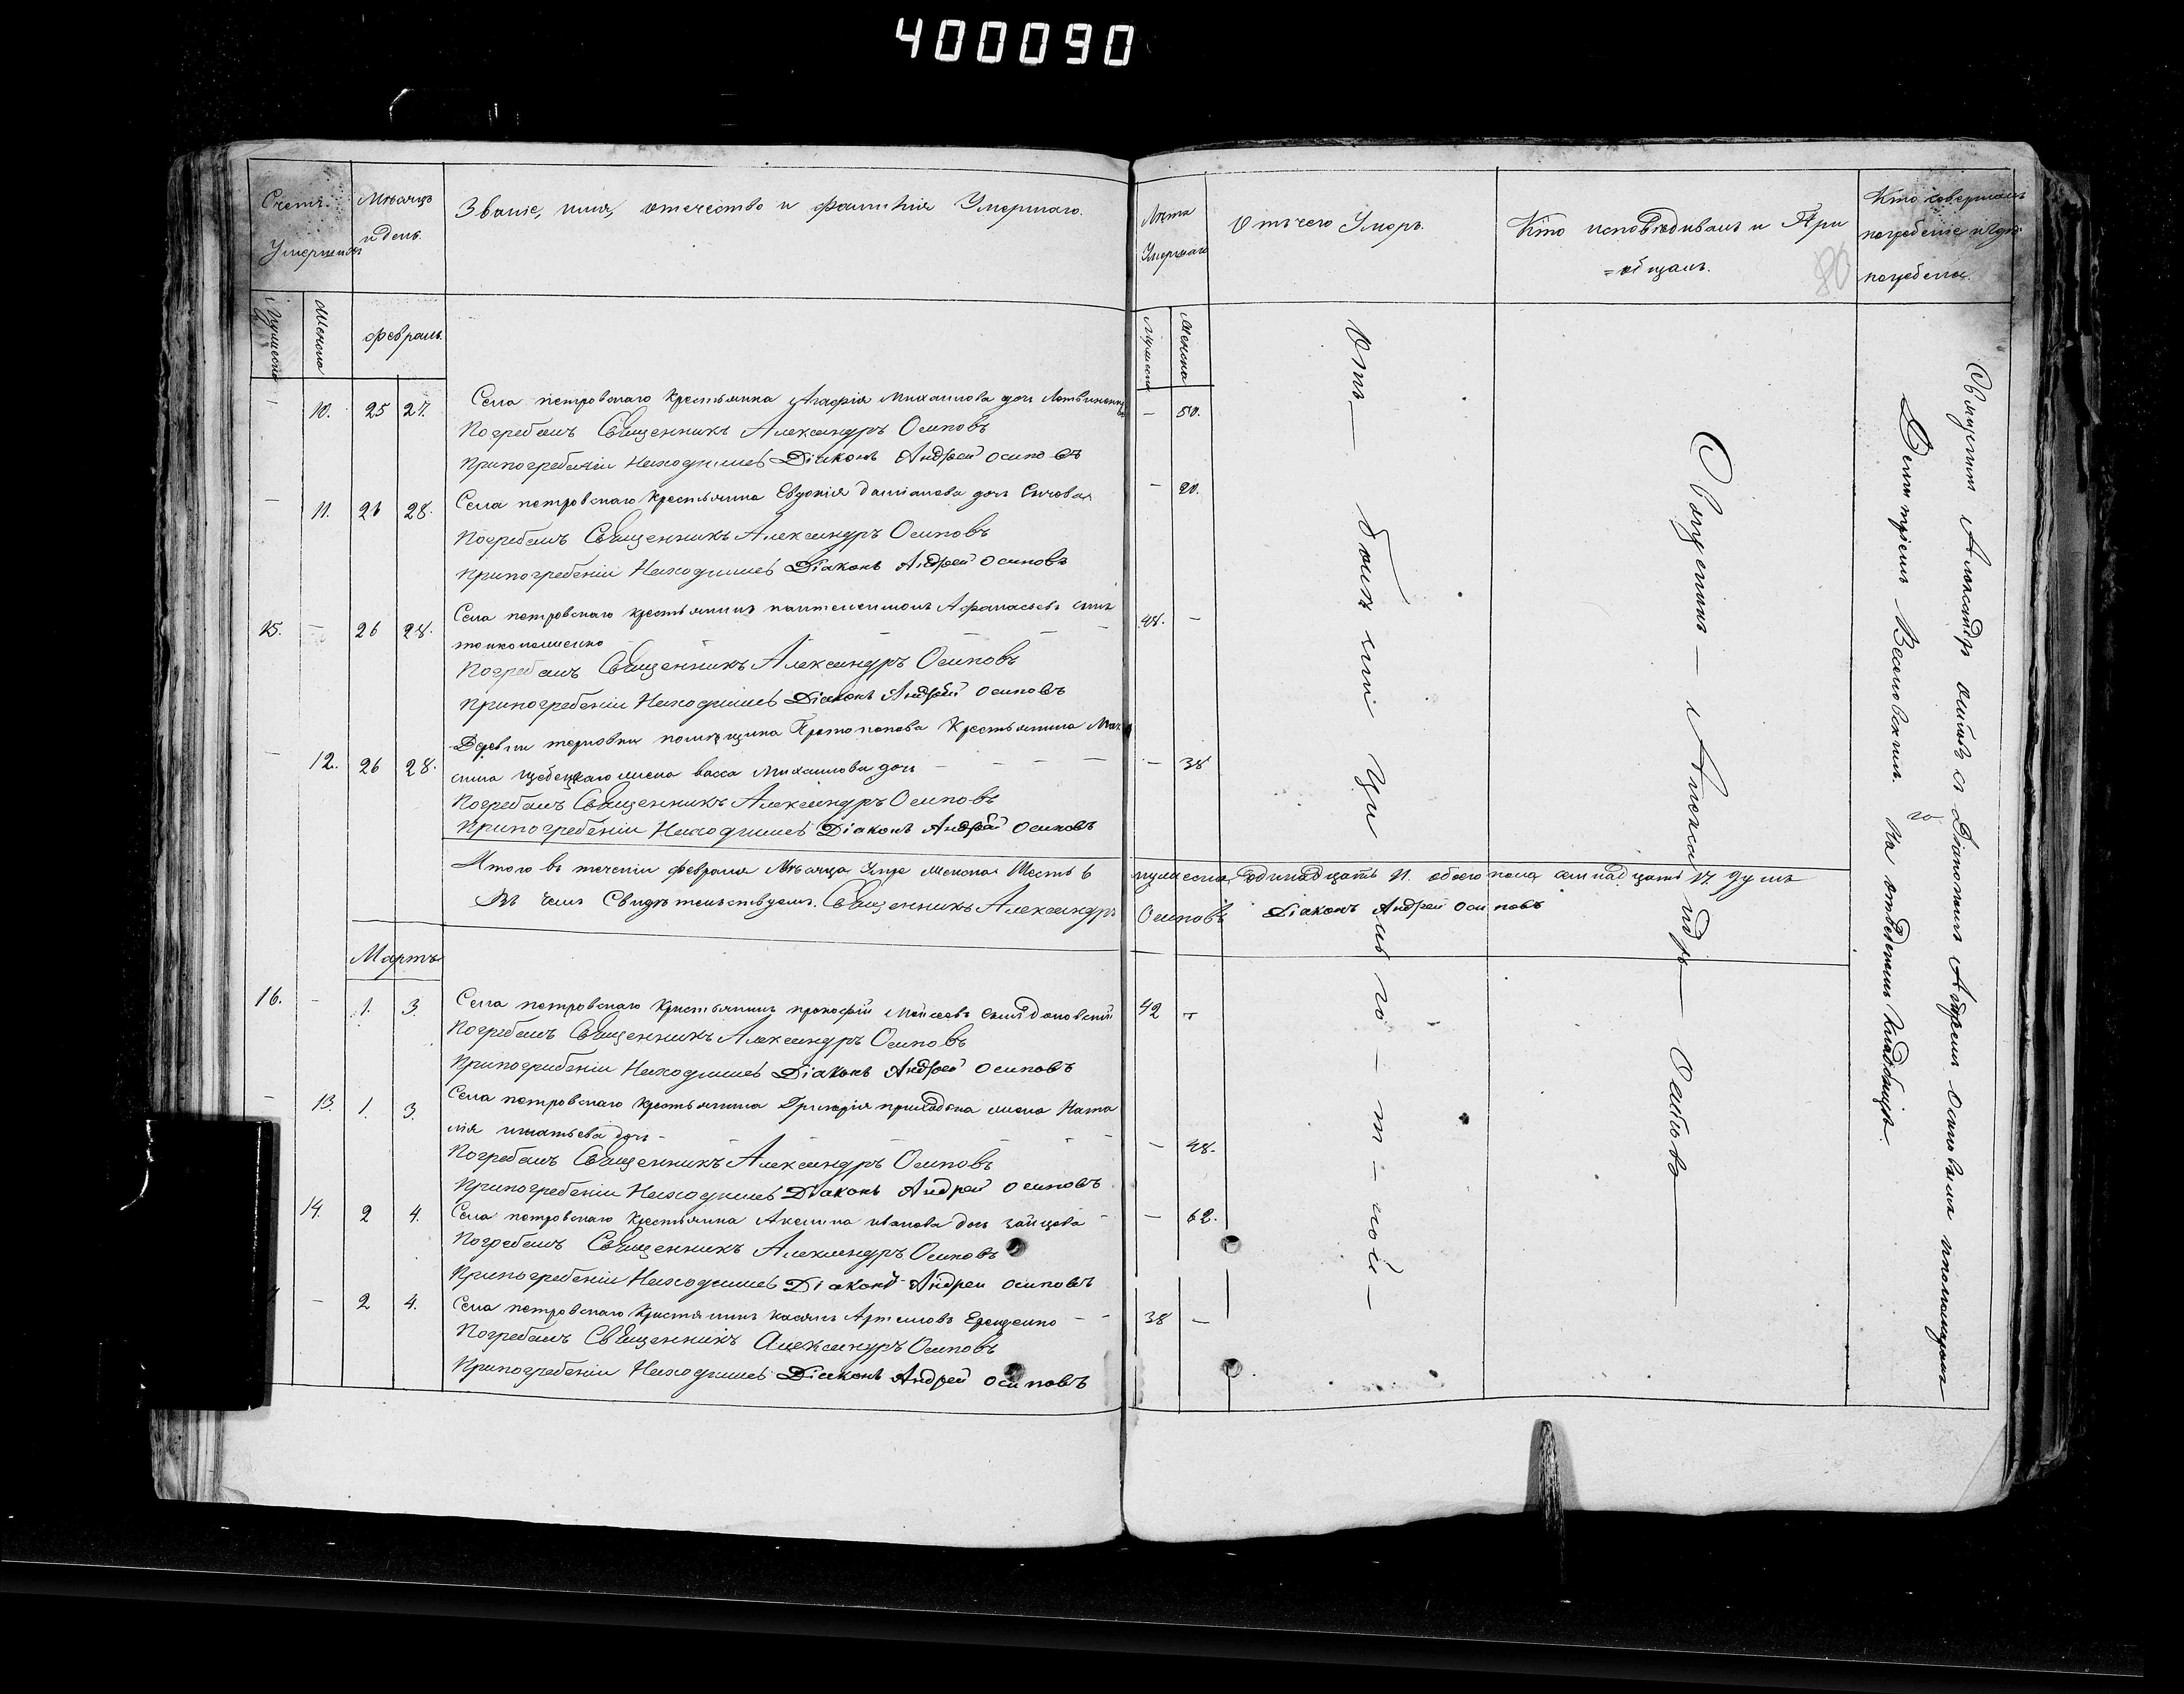 400090
Счетъ Умершихъ
Мѣсяцъ и день.
Званіе, имя, отечество и фамилія Умершаго.
Лѣта Умершаго
Отъ чего Умеръ.
Кто исповѣдывалъ и При
=общалъ.
80
Кто совершалъ
погребеніе и гдѣ
погребены.
Мужеска
Женска
Февраль.
Мужеска
Женска
— 10. 25 27. Села петровскаго крестьянка Агафія Михаилова дочь — 50.
Погребалъ Священникъ Александръ Осиповъ
При погребеніи Находился Діаконъ Андрей Осиповъ
— 11. 26 28. Села петровскаго крестьянка Евдокія даміанова дочь — 20.
Погребалъ Священникъ Александръ Осиповъ
При погребеніи Находился Діаконъ Андрей Осиповъ
15. — 26 28. Села петровскаго крестьянинъ пантелеимонъ Афанасьевъ сынъ 48. —
Погребалъ Священникъ Александръ Осиповъ
При погребеніи Находился Діаконъ Андрей Осиповъ
— 12. 26 28. Деревни терновки помѣщика Протопопова Крестьянина Мак
сима жена васса Михаилова дочь — 38
Погребалъ Священникъ Александръ Осиповъ
При погребеніи Находился Діаконъ Андрей Осиповъ
Итого въ теченіи февраля Мѣсяца Умре женска Шесть 6 мужеска Одинадцать 11. обоего пола семнадцать 17. душъ
Въ чемъ Свидѣтельствуемъ. Священникъ Александръ Осиповъ Діаконъ Андрей Осиповъ
Мартъ
16. — 1. 3. Села петровскаго Крестьянинъ прокофій Моисеевъ 42 —
Погребалъ Священникъ Александръ Осиповъ
При погребеніи Находился Діаконъ Андрей Осиповъ
— 13. 1. 3. Села петровскаго крестьянина Григорія жена Ната
лія игнатьева дочь — 48.
Погребалъ Священникъ Александръ Осиповъ
При погребеніи Находился Діаконъ Андрей Осиповъ
14. 2 4. Села петровскаго Крестьянка Акелина иванова дочь зайцева — 62.
Погребалъ Священникъ Александръ Осиповъ
При погребеніи Находился Діаконъ Андрей Осиповъ
— 2 4. Села петровскаго Крестянинъ касянъ Артемовъ Ерещенко 38 —
Погребалъ Священникъ Александръ Осиповъ
При погребеніи Находился Діаконъ Андрей Осиповъ
Отъ —
Священникъ — Александръ — Осиповъ —
Священникъ Александръ Осиповъ съ Діакономъ Андреемъ Осиповымъ и пономаремъ
Димитріемъ Весоловскимъ. На отведеномъ кладбищѣ.